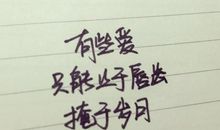 有些爱
只能止于唇齿
掩于岁月